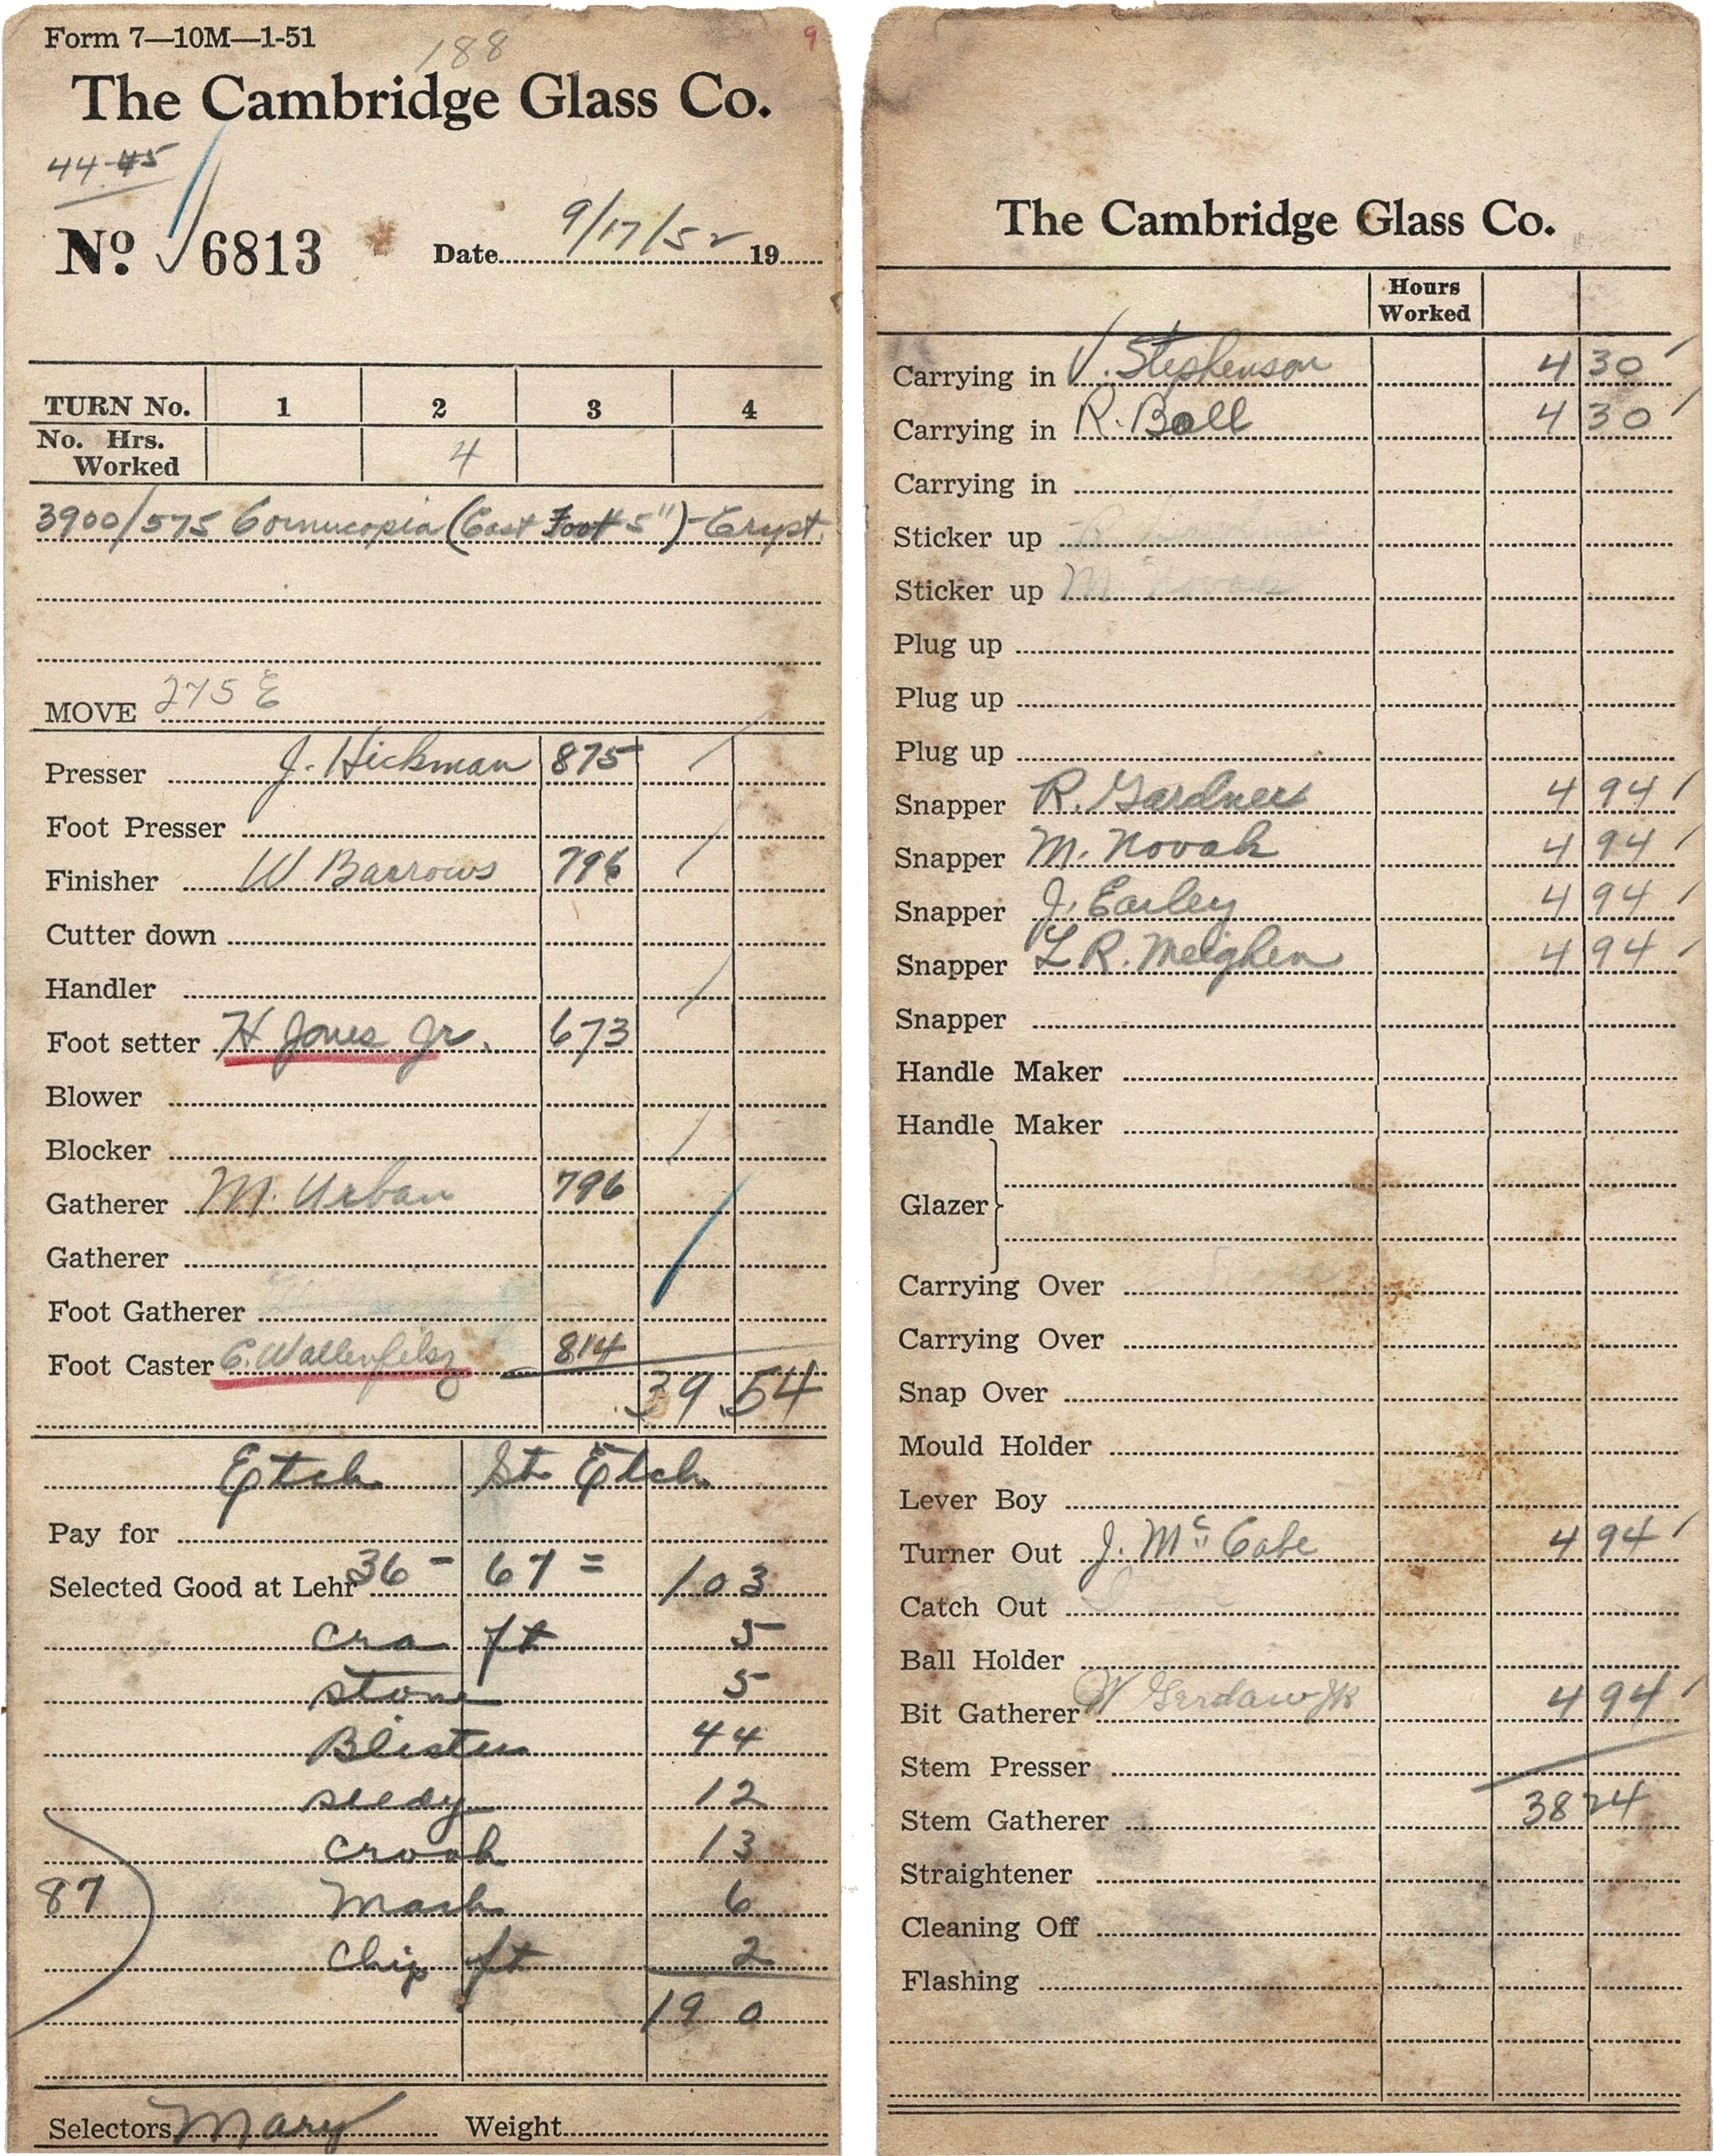 Form 7—10M—1-51
188
9
The Cambridge Glass Co.
44-45
No. 6813 Date 9/17/52 19
TURN No. 1 2 3 4
No. Hrs. Worked 4
3900/575 Cornucopia (Cast Foot 5") - Cryst.
MOVE 275 E
Presser J. Hickman 875
Foot Presser
Finisher W Barrows 796
Cutter down
Handler
Foot setter H Jones Jr. 673
Blower
Blocker
Gatherer M. Urban 796
Gatherer
Foot Gatherer
Foot Caster C. Wallenfelsz 814
39 54
Etch St Etch
Pay for
Selected Good at Lehr 36 - 67 = 103
cra ft 5
stone 5
Blister 44
seedy 12
crook 13
87 Mark 6
chip ft 2
190
Selectors Mary Weight
The Cambridge Glass Co.
Hours Worked
Carrying in V. Stephenson 4 30
Carrying in R. Ball 4 30
Carrying in
Sticker up
Sticker up M. Novak
Plug up
Plug up
Plug up
Snapper R. Gardner 4 94
Snapper M. Novak 4 94
Snapper J. Earley 4 94
Snapper L R. Meighen 4 94
Snapper
Handle Maker
Handle Maker
Glazer
Carrying Over
Carrying Over
Snap Over
Mould Holder
Lever Boy
Turner Out J. McCabe 4 94
Catch Out
Ball Holder
Bit Gatherer W Gerdaw JR 4 94
Stem Presser
Stem Gatherer 38 24
Straightener
Cleaning Off
Flashing